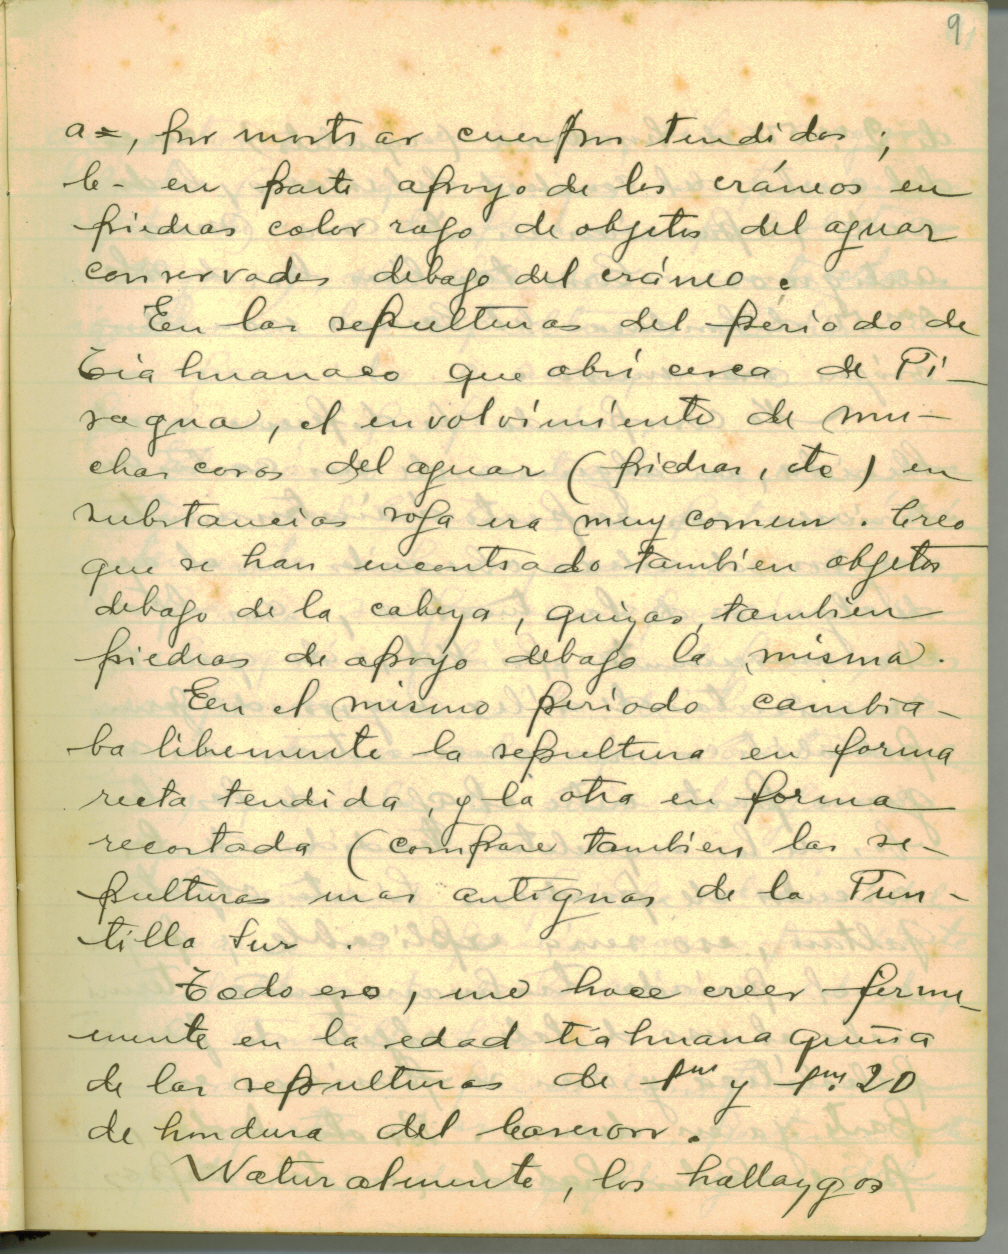 9
a=, por mostrar cuerpos tendidos ;
b- en parte apoyo de los cráneos en
piedras color rogo de objetos del aguar
conservados debago del cráneo.
En las sepulturas del periodo de
Tiahuanaco que abrí cerca de Pi-
sagua, el envolvimiento de mu-
chas cosas del aguar (piedras, etc) en
substancias roga era muy comun. Creo
que se han encontrado tambien objetos
debago de la cabeya, quiyas, tambien
piedras de apoyo debago la misma.
En el mismo periodo cambia-
ba libremente la sepultura en forma
recta tendida, y la otra en forma
recortada (compare tambien las se-
pulturas mas antiguas de la Pun-
tilla Sur .
Todo eso, me hace creer firme-
mente en la edad tiahuanaqueña
de las sepulturas de 1m y 1m. 20
de hondura del Caseron.
Naturalmente, los hallaygos